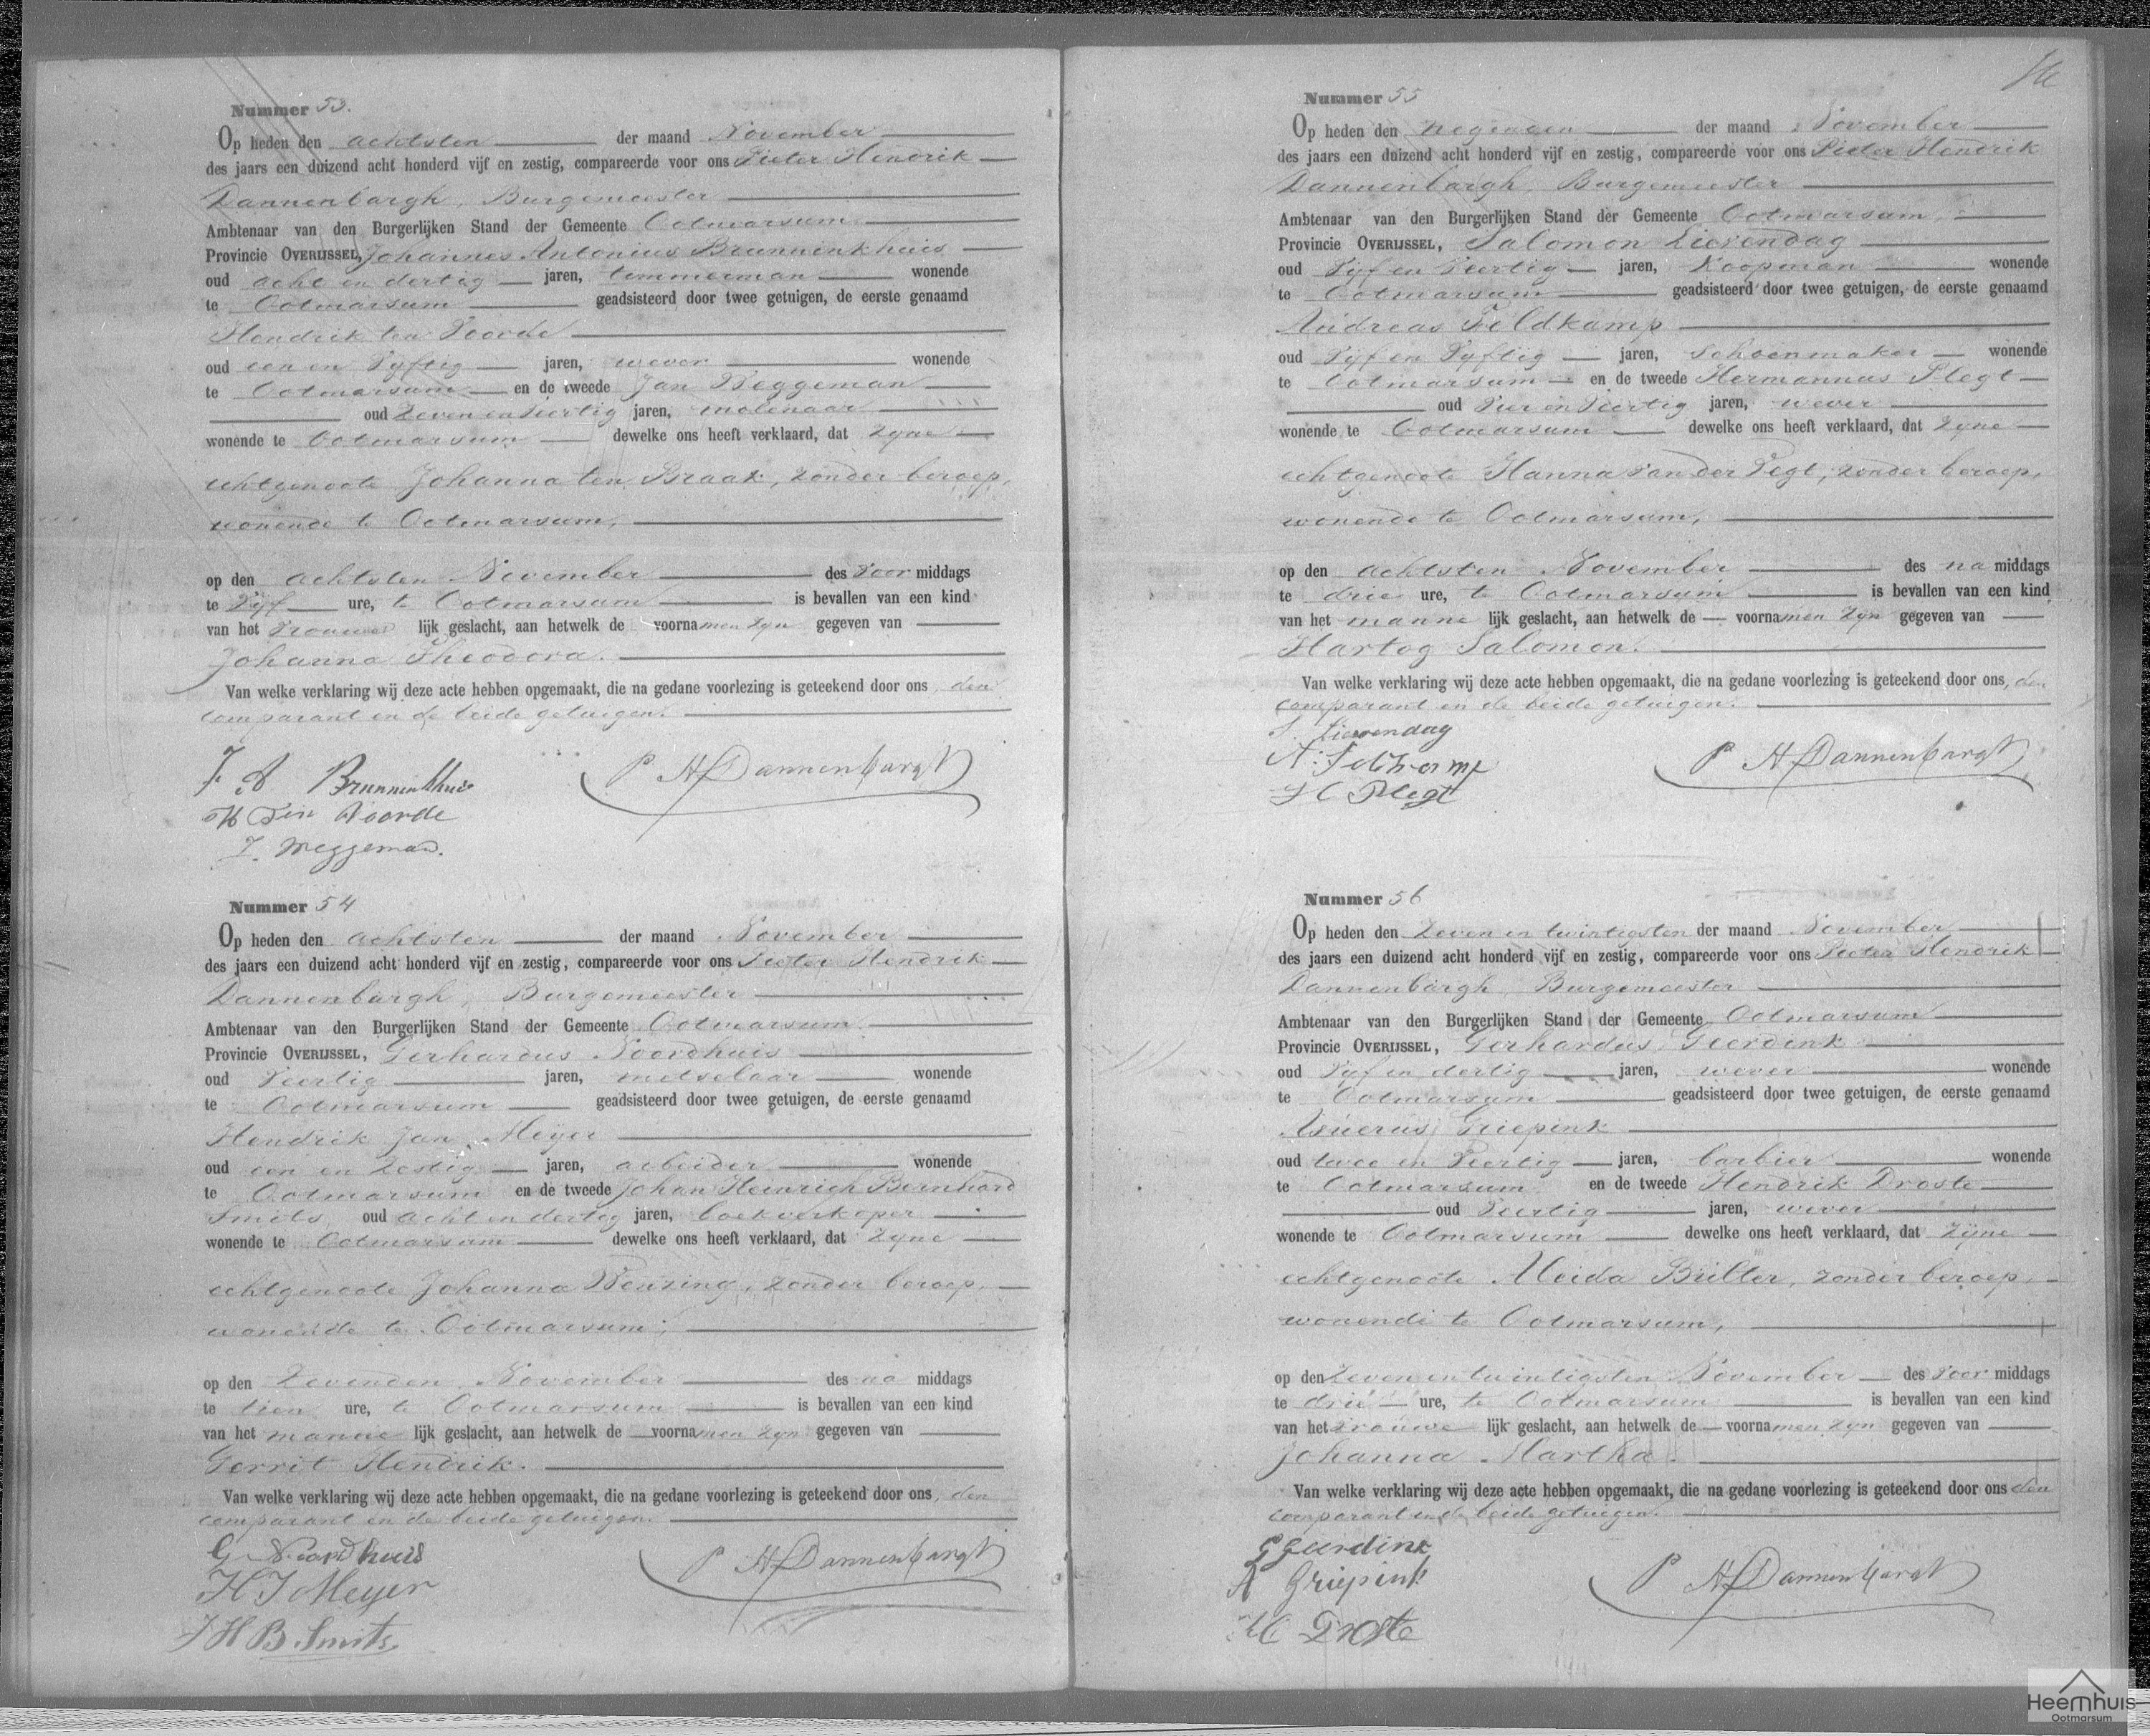 Nummer 53.
Op heden den achtsten der maand November
des jaars een duizend acht honderd vijf en zestig, compareerde voor ons Pieter Hendrik
Dannenbargh, Burgemeester
Ambtenaar van den Burgerlijken Stand der Gemeente Ootmarsum
Provincie OVERIJSSEL, Johannes Antonius Brunninkhuis
oud acht en dertig jaren, timmerman wonende
te Ootmarsum geadsisteerd door twee getuigen, de eerste genaamd
Hendrik ten Voorde
oud een en Vyftig jaren, wever wonende
te Ootmarsum en de tweede Jan Weggeman
oud Zeven en Veertig jaren, molenaar
wonende te Ootmarsum dewelke ons heeft verklaard, dat Zyne
echtgenoote Johanna ten Braak, zonder beroep,
wonende te Ootmarsum,
op den achtsten November des Voor middags
te Vyf ure, te Ootmarsum is bevallen van een kind
van het Vrouwe lijk geslacht, aan hetwelk de voornamen zyn gegeven van
Johanna Theodora.
Van welke verklaring wij deze acte hebben opgemaakt, die na gedane voorlezing is geteekend door ons, den
comparant en de beide getuigen.
J A Brunninkhuis P H Dannenbargh
H Ten Voorde
J. Weggeman.
Nummer 54
Op heden den achtsten der maand November
des jaars een duizend acht honderd vijf en zestig, compareerde voor ons Pieter Hendrik
Dannenbargh, Burgemeester
Ambtenaar van den Burgerlijken Stand der Gemeente Ootmarsum
Provincie OVERIJSSEL, Gerhardus Noordhuis
oud Veertig jaren, metselaar wonende
te Ootmarsum geadsisteerd door twee getuigen, de eerste genaamd
Hendrik Jan Meyer
oud een en Zestig jaren, arbeider wonende
te Ootmarsum en de tweede Johan Heinrich Bernhard
Smits, oud acht en dertig jaren, boekverkoper
wonende te Ootmarsum dewelke ons heeft verklaard, dat Zyne
echtgenoote Johanna Wenzing, zonder beroep,
wonende te Ootmarsum,
op den Zevenden November des na middags
te tien ure, te Ootmarsum is bevallen van een kind
van het manne lijk geslacht, aan hetwelk de voornamen zyn gegeven van
Gerrit Hendrik.
Van welke verklaring wij deze acte hebben opgemaakt, die na gedane voorlezing is geteekend door ons, den
comparant en de beide getuigen.
G Noordhuis P H Dannenbargh
H J Meyer
J H B. Smits
Nummer 55
Op heden den negenden der maand November
des jaars een duizend acht honderd vijf en zestig, compareerde voor ons Pieter Hendrik
Dannenbargh, Burgemeester
Ambtenaar van den Burgerlijken Stand der Gemeente Ootmarsum,
Provincie OVERIJSSEL, Salomon Lievendag
oud Vyf en Veertig jaren, Koopman wonende
te Ootmarsum geadsisteerd door twee getuigen, de eerste genaamd
Andreas Veldkamp
oud Vyf en Vyftig jaren, schoenmaker wonende
te Ootmarsum en de tweede Hermannus Plegt
oud Vier en Veertig jaren, wever
wonende te Ootmarsum dewelke ons heeft verklaard, dat Zyne
echtgenoote Hanna van der Vegt, zonder beroep,
wonende te Ootmarsum,
op den achtsten November des na middags
te drie ure, te Ootmarsum is bevallen van een kind
van het manne lijk geslacht, aan hetwelk de voornamen zyn gegeven van
Hartog Salomon.
Van welke verklaring wij deze acte hebben opgemaakt, die na gedane voorlezing is geteekend door ons, den
comparant en de beide getuigen.
S. Lievendag
A: Feldkamp P H Dannenbargh
H Plegt
Nummer 56
Op heden den Zeven en twintigsten der maand November
des jaars een duizend acht honderd vijf en zestig, compareerde voor ons Pieter Hendrik
Dannenbargh Burgemeester
Ambtenaar van den Burgerlijken Stand der Gemeente Ootmarsum
Provincie OVERIJSSEL, Gerhardus Geerdink
oud Vyf en dertig jaren, wever wonende
te Ootmarsum geadsisteerd door twee getuigen, de eerste genaamd
Asuerus Griepink
oud twee en Veertig jaren, barbier wonende
te Ootmarsum en de tweede Hendrik Droste
oud Veertig jaren, wever
wonende te Ootmarsum dewelke ons heeft verklaard, dat Zyne
echtgenoote Aleida Brilter, zonder beroep,
wonende te Ootmarsum,
op den Zeven en twintigsten November des Voor middags
te drie ure, te Ootmarsum is bevallen van een kind
van het Vrouwe lijk geslacht, aan hetwelk de voornamen zyn gegeven van
Johanna Martha.
Van welke verklaring wij deze acte hebben opgemaakt, die na gedane voorlezing is geteekend door ons den
comparant en de beide getuigen.
G Geerdink
A Griepink P H Dannenbargh
H Droste
Heemhuis
Ootmarsum